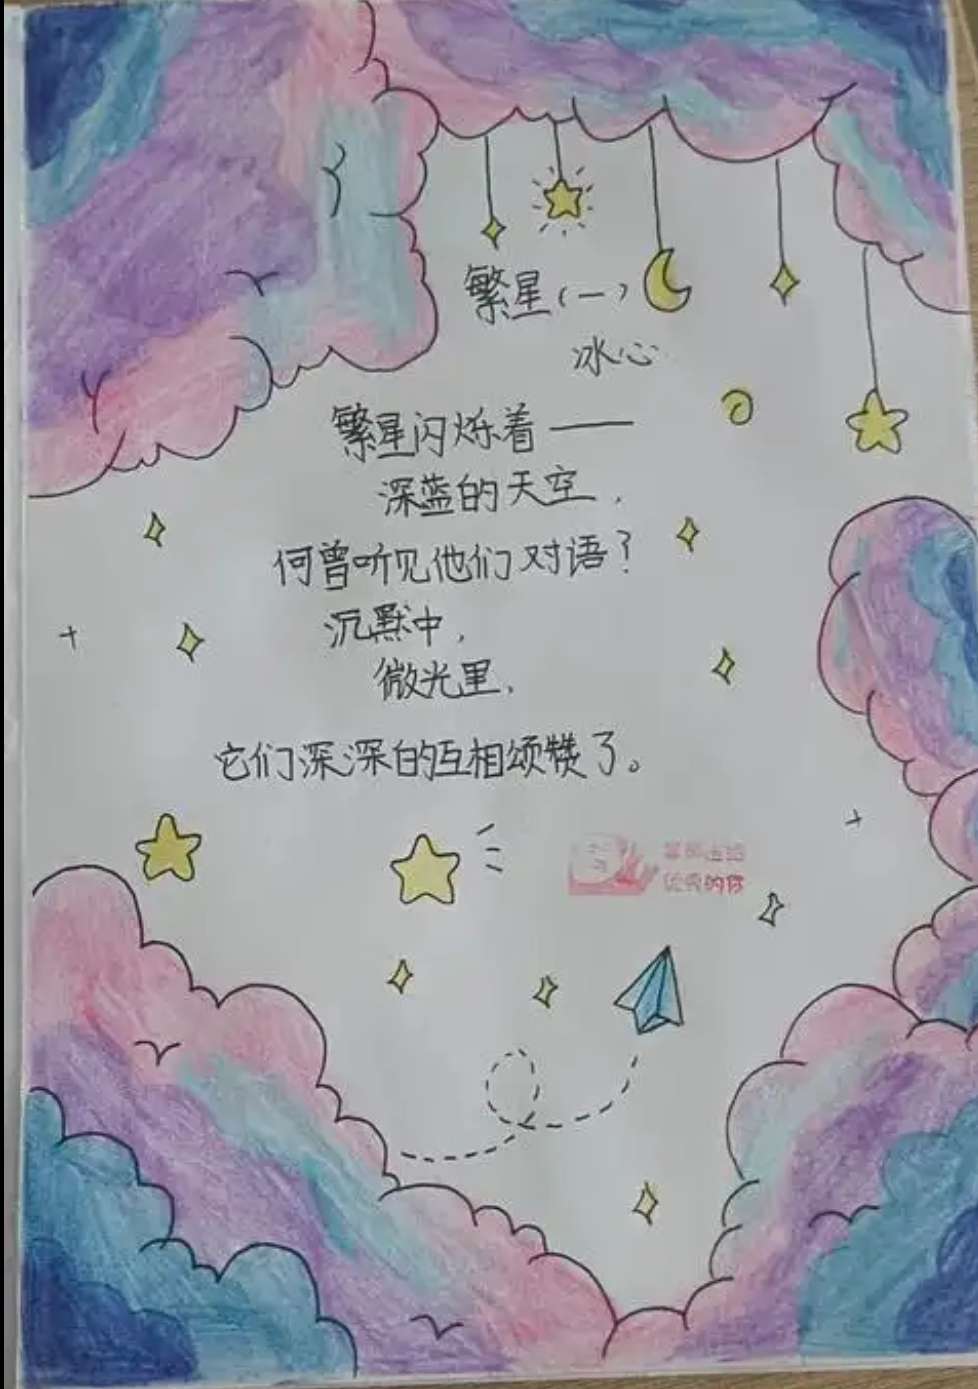 繁星（一）
冰心
繁星闪烁着——
深蓝的天空，
何曾听见他们对语？
沉默中，
微光里，
它们深深的互相颂赞了。
优秀的你